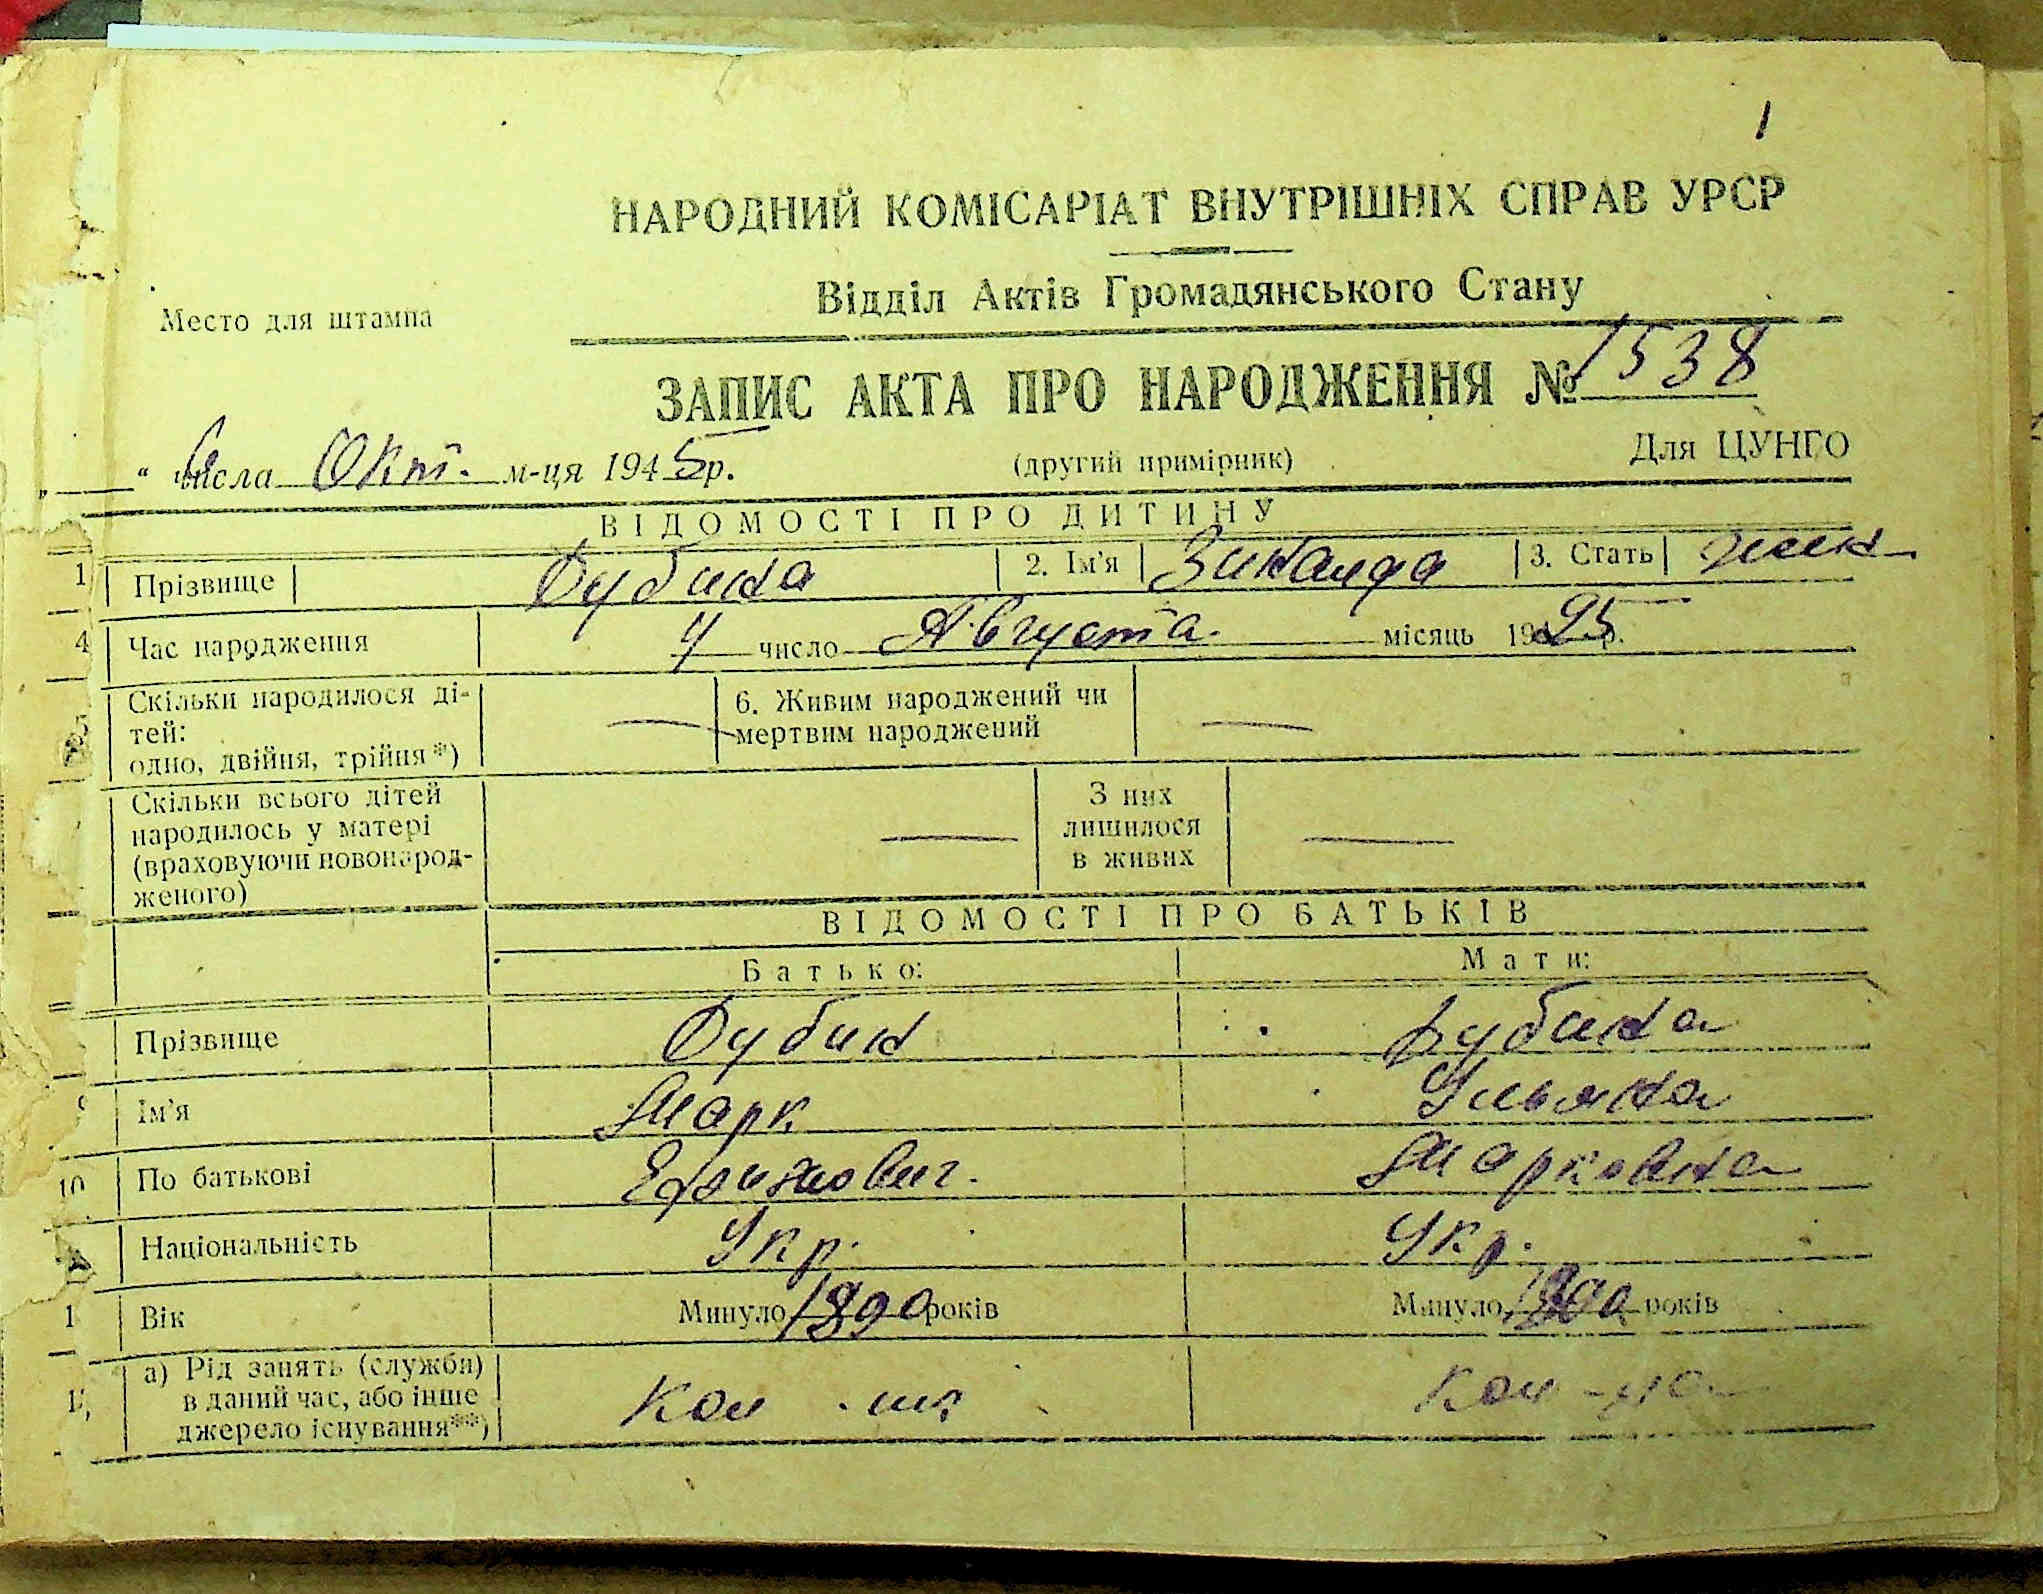 1
НАРОДНИЙ КОМІСАРІАТ ВНУТРІШНІХ СПРАВ УРСР
Відділ Актів Громадянського Стану
Место для штампа
ЗАПИС АКТА ПРО НАРОДЖЕННЯ № 1538
„ 6 “ числа Окт. м-ця 1945 р. (другий примірник) Для ЦУНГО
ВІДОМОСТІ ПРО ДИТИНУ
1 Прізвище Дубина 2. Ім'я Зинаида 3. Стать жен
4 Час народження 4 число Августа месяць 1925 р.
5 Скільки народилося ді-
тей:
одно, двійня, трійня*) — 6. Живим народжений чи
мертвим народжений —
Скільки всього дітей
народилось у матері
(враховуючи новонарод-
женого) — З них
лишилося
в живих —
ВІДОМОСТІ ПРО БАТЬКІВ
Батько: Мати:
Прізвище Дубина Дубина
9 Ім'я Марк Ульяна
10 По батькові Ефимович Марковна
Національність Укр. Укр.
1 Вік Минуло 1890 років Минуло 1900 років
1 а) Рід занять (служби)
в даний час, або інше
джерело існування**) Кол - ик Кол - ца